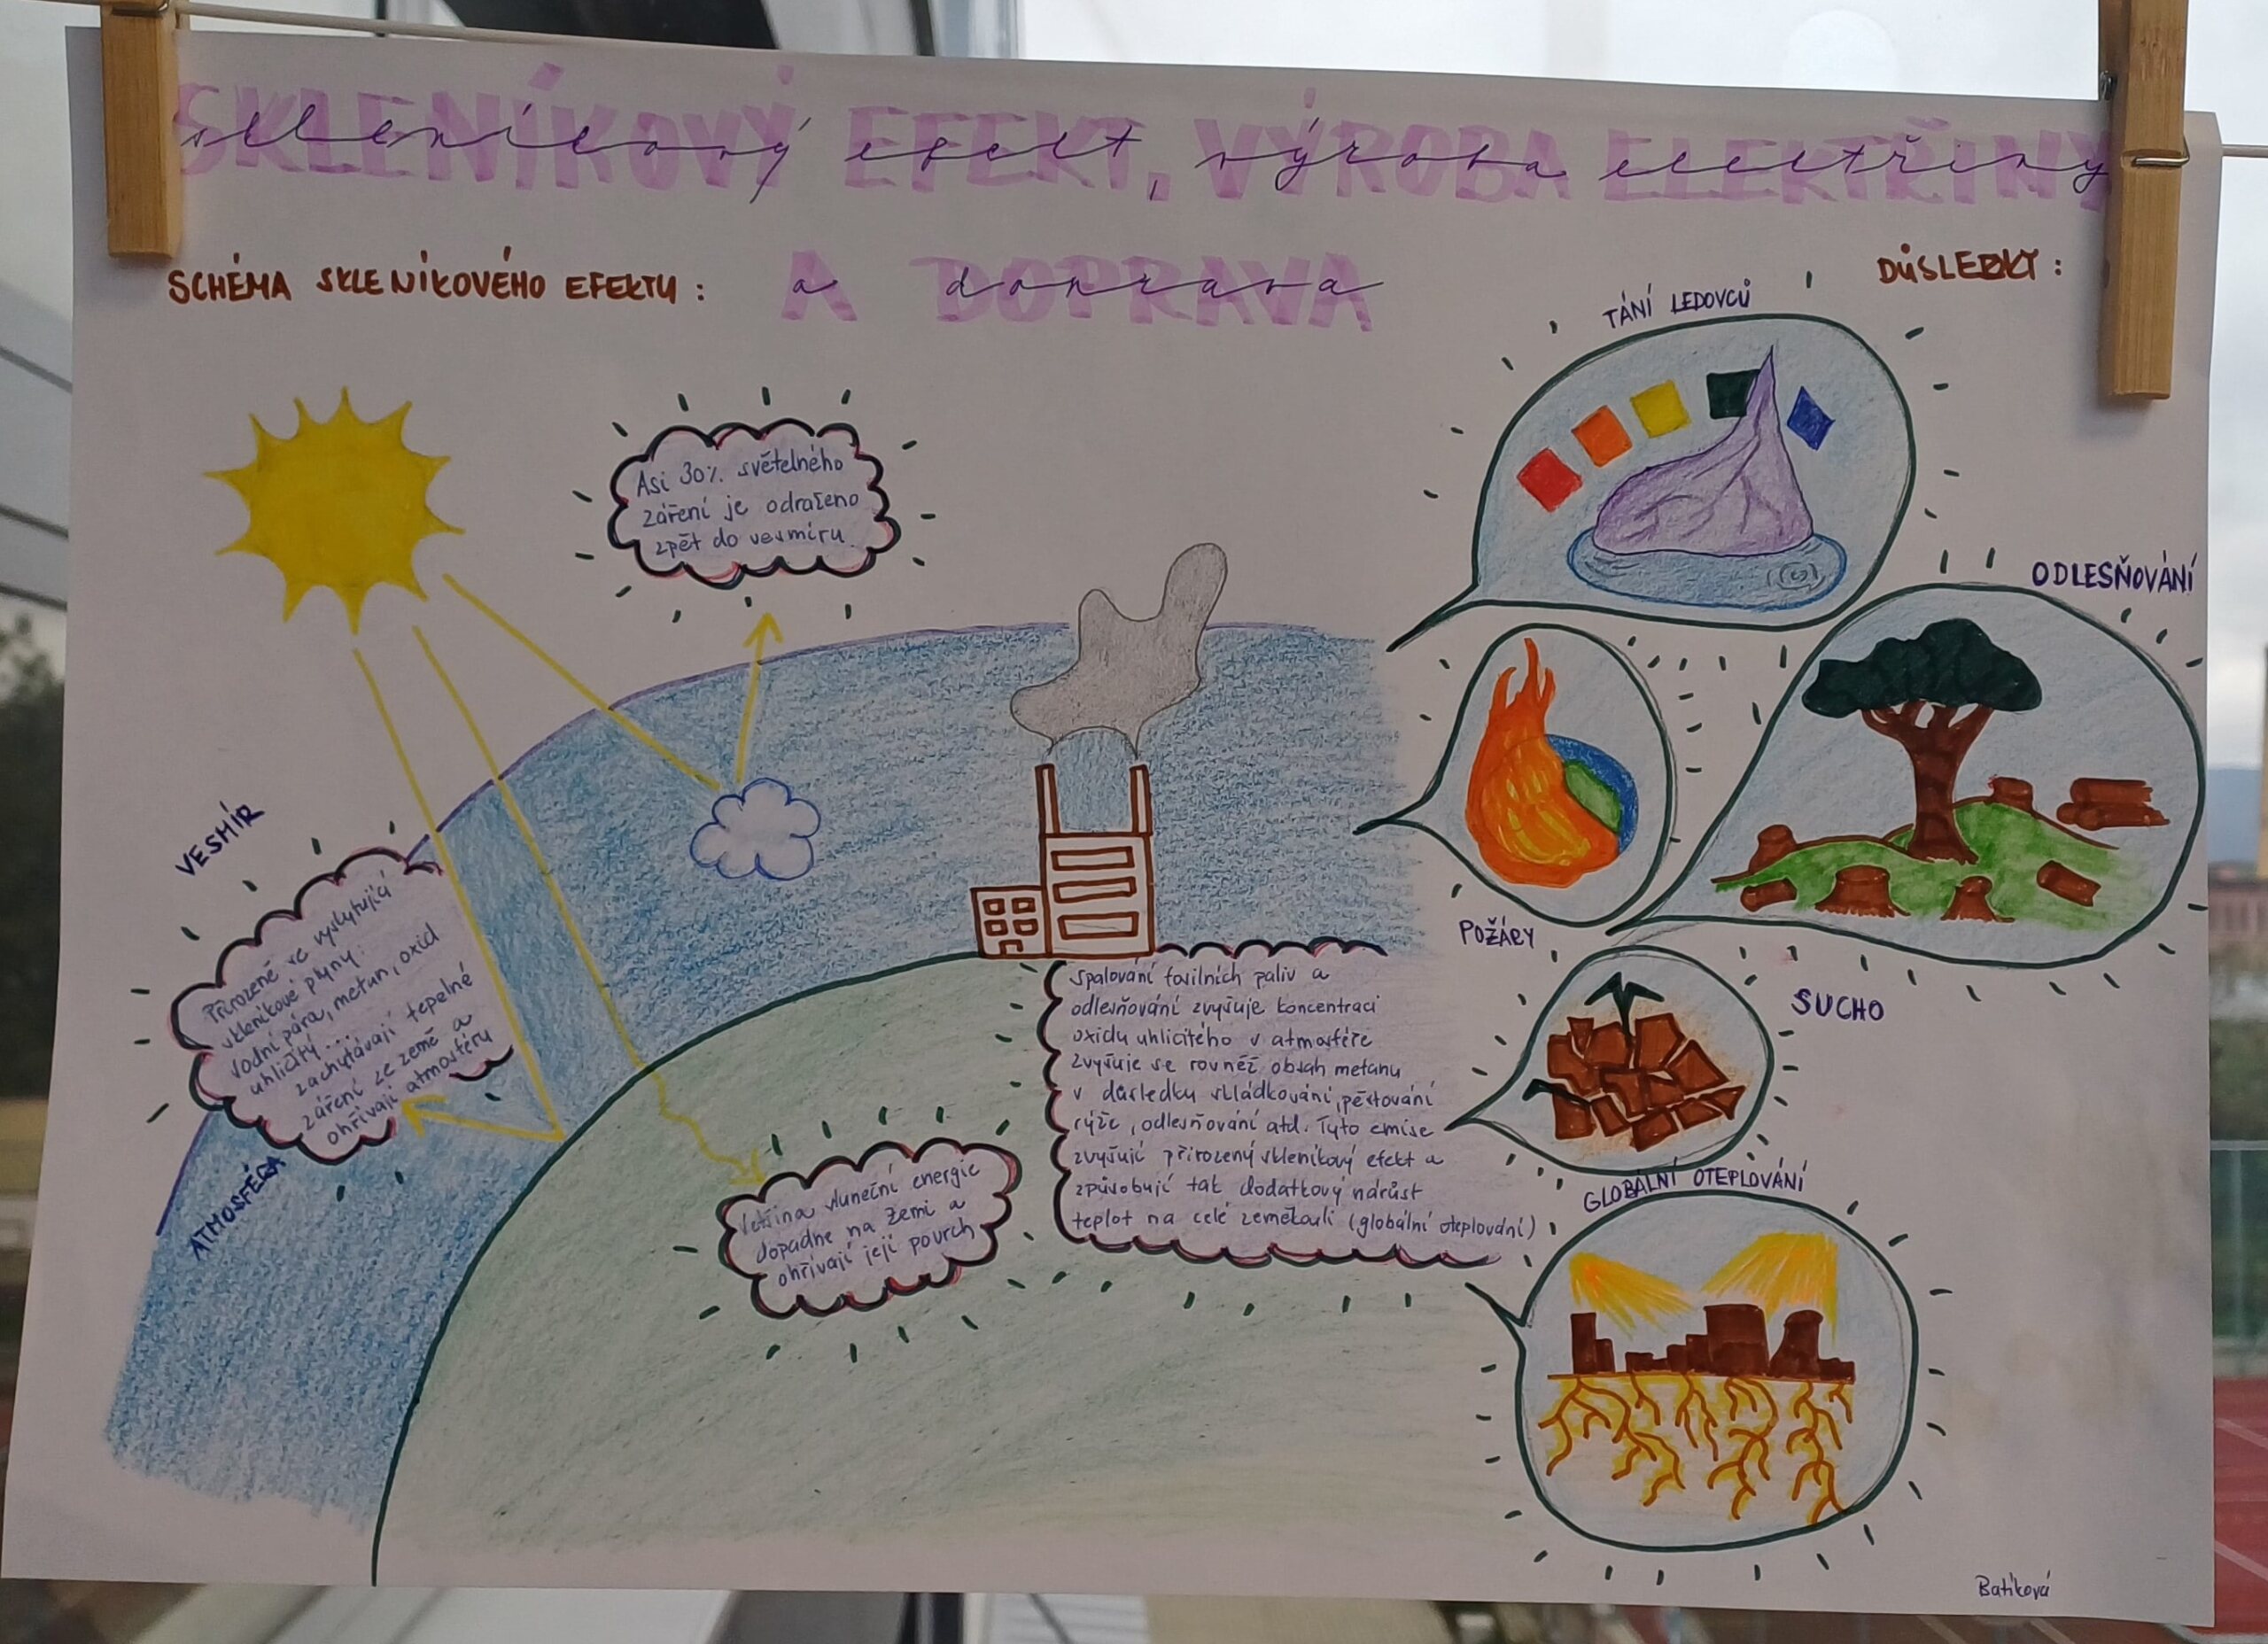 SKLENÍKOVÝ EFEKT, VÝROBA ELEKTŘINY
skleníkový efekt, výroba elektřiny
A DOPRAVA
a doprava
SCHÉMA SKLENÍKOVÉHO EFEKTU:
Asi 30% světelného
záření je odraženo
zpět do vesmíru
VESMÍR
Přirozeně se vyskytující
skleníkové plyny:
vodní pára, metan, oxid
uhličitý...
zachytávají tepelné
záření ze země a
ohřívají atmosféru
ATMOSFÉRA
Většina sluneční energie
dopadne na Zemi a
ohřívají její povrch
Spalování fosilních paliv a
odlesňování zvyšuje koncentraci
oxidu uhličitého v atmosféře
Zvyšuje se rovněž obsah metanu
v důsledku skládkování, pěstování
rýže, odlesňování atd. Tyto emise
zvyšují přirozený skleníkový efekt a
způsobují tak dodatkový nárůst
teplot na celé zeměkouli (globální oteplování)
DŮSLEDKY:
TÁNÍ LEDOVCŮ
ODLESŇOVÁNÍ
POŽÁRY
SUCHO
GLOBÁLNÍ OTEPLOVÁNÍ
Batíková